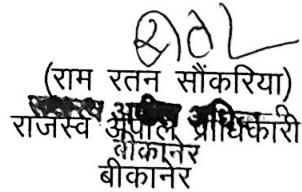 (राम रतन सौंकरिया)
राजस्व अपील प्राधिकारी
बीकानेर
बीकानेर